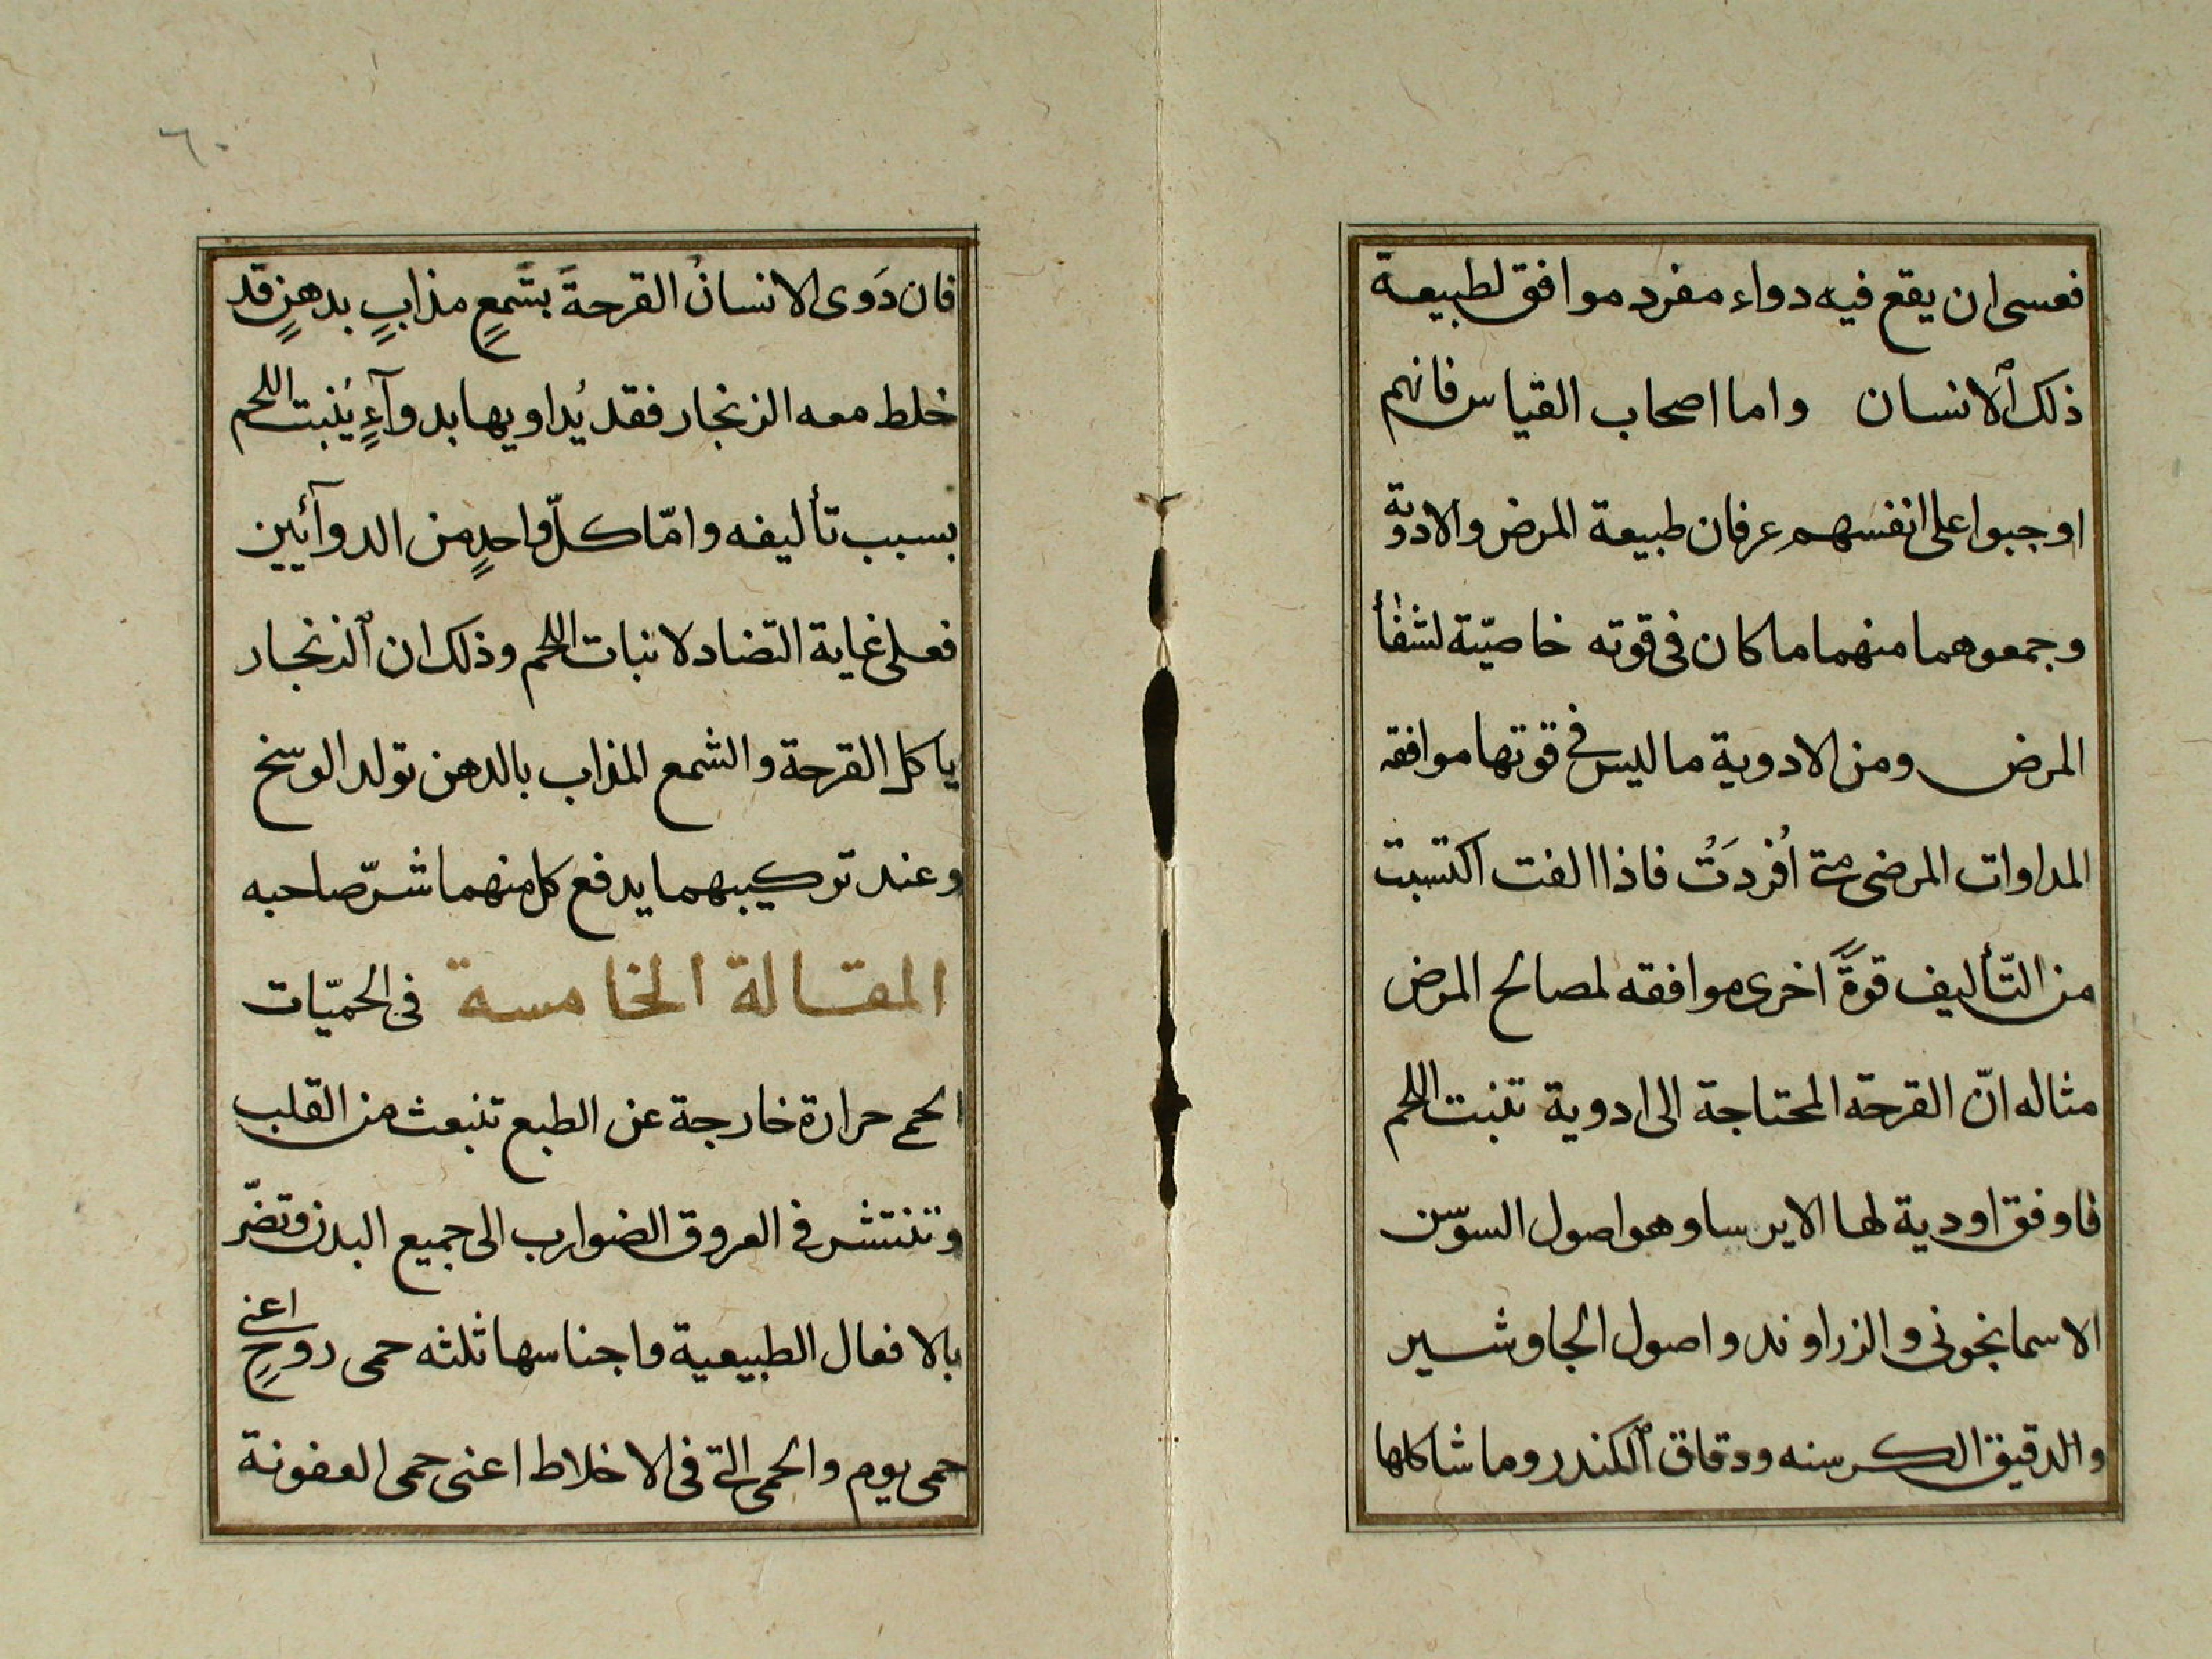 فعسى ان يقع فيه دواء مفرد موافق لطبيعة
ذلك الانسان واما اصحاب القياس فانهم
اوجبوا على انفسهم عرفان طبيعة المرض والادوية
وجمعوهما منهما ما كان فى قوته خاصيّة لشفأ
المرض ومن الادوية ما ليس فى قوتها موافقه
المداوات المرضى متى اُفردَتُ فاذا الفت اكتسبت
من التّأليف قوةً اخرى موافقه لمصالح المرض
مثاله انّ القرحة المحتاجة الى ادوية تنبت اللحم
فاوفق اودية لها الايرسا وهو اصول السوسن
الاسمانجونى والزراوند واصول الجاوشير
والدقيق الكرسنه ودقاق الكندر وما شاكلها
٦٠
فان دَوى الانسانُ القرحةَ بشَمعٍ مذابٍ بدهنٍ قد
خلط معه الزنجار فقد يُداويها بدوآءٍ يُنبت اللحم
بسبب تأليفه وامّا كلّ واحدٍ من الدوآئين
فعلى غاية التّضاد لانبات اللحم وذلك ان الزنجار
ياكل القرحة والشمع المذاب بالدهن تولد الوسخ
وعند تركيبهما يدفع كل منهما شرّ صاحبه
المقالة الخامسة فى الحميّات
الحمى حرارة خارجة عن الطبع تنبعث من القلب
وتنتشر فى العروق الضوارب الى جميع البدن وتضرّ
بالافعال الطبيعية واجناسها ثلثه حمى روحٍ اعنى
حمى يوم والحمى التى فى الاخلاط اعنى حمى العفونة